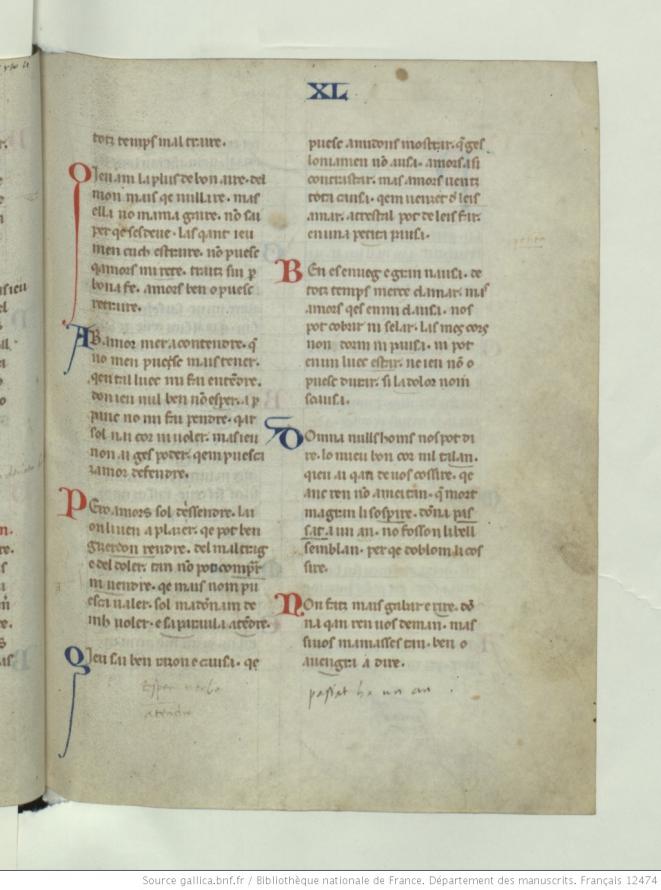 XL
totz temps mal traire.
Qieu am la plus de bon aire. del
mon mais qe nulla re. mas
ella no mama gaire. nō sai
per qe sesdeue. las qant ieu
men cuch estraire. no puesc
qamors mi te. trait sui p
bona fe. amors ben o puesc
retraire.
AB amor mer a contendre. q̄
no men puesc mais tener.
qen tal luec mi fai entēdre.
don ieu nul ben nō esper. a p
pauc no mi fai pendre. qar
sol nai cor ni uoler. mas ieu
non ai ges poder. qem puesca
damor defendre.
Pero amors sol dessendre. lai
on li uen a plazer. qe pot ben
guerdon rendre. del maltrag
e del doler. tan nō pot comprar
ni uendre. qe mais nom pu
esca ualer. sol madōnam de
inh uoler. e sa paraula atēdre.
Qieu sai ben razon e causa. qe
puesc a midons mostrar. q̄ ges
loniamen nō ausa. amors asi
contrastar. mas amors uentz
tota causa. qem uencet d leis
amar. atrestal pot de leis far.
en una petita pausa.
Ben es enueg e gran nausa. de
totz temps merce clamar. mas
amors qes en mi clausa. nos
pot cobrir ni selar. las mos cors
non dorm ni pausa. ni pot
en un luec estar. ne ieu nō o
puesc durar. si la dolor nom
suausa.
Domna nulls homs nos pot di
re. lo mieu bon cor nil talan.
qieu ai qan de uos cossire. qe
anc ren nō amei tan. q̄ mort
magran li sospire. dōna pas
sat a un an. no fosson li bell
semblan. per qe doblom li cos
sire.
Non faitz mais gabar e rire. dō
na qan ren uos deman. mas
si uos mamasses tan. ben o
auengra a dire.
passat ha un an.
Source gallica.bnf.fr / Bibliothèque nationale de France. Département des manuscrits. Français 12474